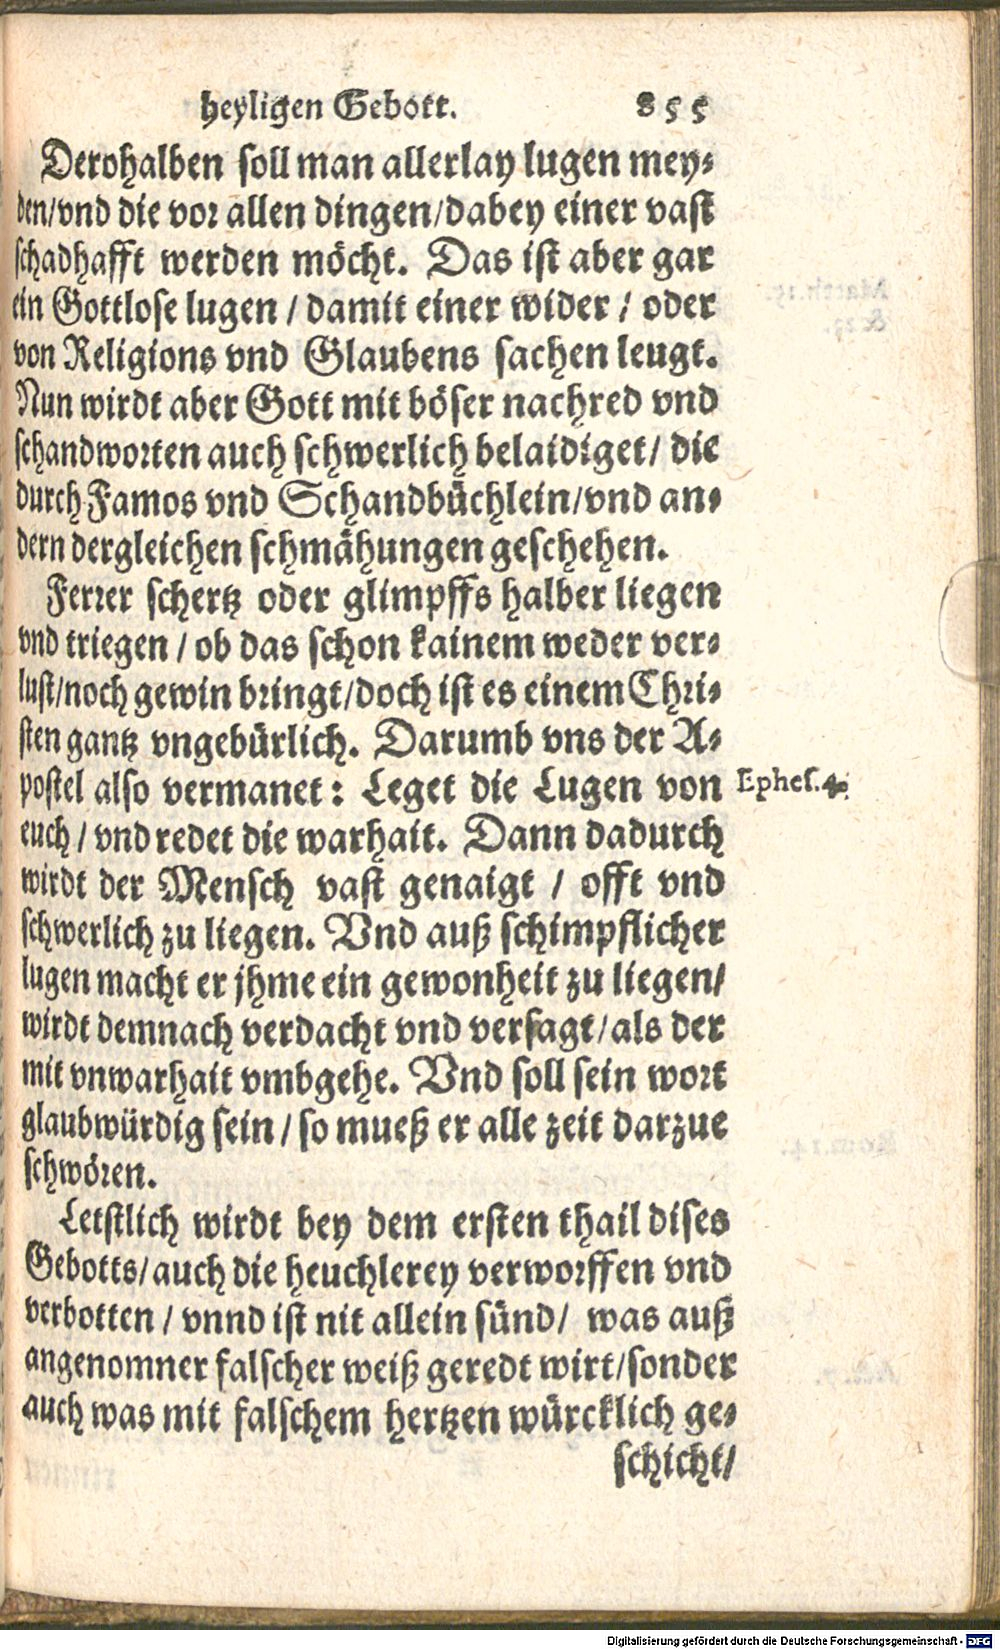 heyligen Gebott. 855
Derohalben soll man allerlay lugen mey⸗
den/vnd die vor allen dingen/dabey einer vast
schadhafft werden möcht. Das ist aber gar
ein Gottlose lugen / damit einer wider / oder
von Religions vnd Glaubens sachen leugt.
Nun wirdt aber Gott mit böser nachred vnd
schandworten auch schwerlich belaidiget/ die
durch Famos vnd Schandbüchlein/vnd an⸗
dern dergleichen schmähungen geschehen.
Ferrer schertz oder glimpffs halber liegen
vnd triegen / ob das schon kainem weder ver⸗
lust/noch gewin bringt/doch ist es einem Chri⸗
sten gantz vngebürlich. Darumb vns der A⸗
postel also vermanet: Leget die Lugen von Ephes. 4.
euch / vnd redet die warhait. Dann dadurch
wirdt der Mensch vast genaigt / offt vnd
schwerlich zu liegen. Vnd auß schimpflicher
lugen macht er jhme ein gewonheit zu liegen/
wirdt demnach verdacht vnd versagt/als der
mit vnwarhait vmbgehe. Vnd soll sein wort
glaubwürdig sein / so mueß er alle zeit darzue
schwören.
Letstlich wirdt bey dem ersten thail dises
Gebotts/auch die heuchlerey verworffen vnd
verbotten / vnnd ist nit allein sünd/ was auß
angenomner falscher weiß geredt wirt/sonder
auch was mit falschem hertzen würcklich ge⸗
schicht/
Digitalisierung gefördert durch die Deutsche Forschungsgemeinschaft - DFG